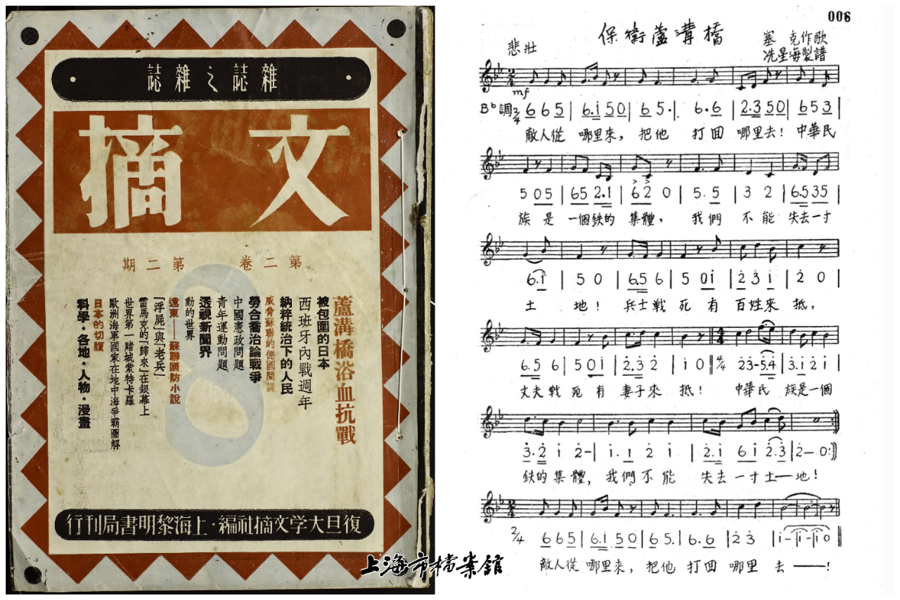 雜誌之雜誌
文摘
第二卷 第二期
蘆溝橋浴血抗戰
被包圍的日本
西班牙內戰週年
納粹統治下的人民
勞合喬治論戰爭
中國憲政問題
青年運動問題
透視新聞界
動的世界
遠東——蘇聯國防小說
「浮屍」與「老兵」
雷馬克的「歸來」在銀幕上
世界第一賭城蒙特卡羅
歐洲海軍國家在地中海爭霸圖解
日本的切腹
科學·各地·人物·漫畫
8
復旦大学文摘社編·上海黎明書局刊行
上海市檔案館
006
保衛蘆溝橋
悲壯
塞克作歌
冼星海製譜
mf
Bb調 2/4 6 6 5 | 6.i 5 0 | 6 5 . | 6.6 | 2.3 5 0 | 6 5 3 |
敵人從 哪里來，把他 打回 哪里去！中華民
5 0 5 | 6 5 2.1 | 6 2 0 | 5. 5 | 3 2 | 6.5 3 5 |
族 是 一個鉄的 集體， 我們 不能 失去一寸
6.i | 5 0 | 6.5 6 | 5 0 i | 2 3 i | 2 0 |
土 地！ 兵士戰 死 有 百姓來 抵，
6.5 6 | 5 0 i | 2.3 2 | i 0 | 4/4 2 3-5.4 | 3.i 2 i |
丈夫戰 死 有 妻子來 抵！ 中華民 族是一個
3.2 i 2- | i. i 2 i | 2.i 6 i 2.3 | 2- 0 :||
鉄的集體，我們不能 失去一寸土—地！
2/4 6 6 5 | 6.i 5 0 | 6 5. | 6.6 | 2 3 | i-|i-|i 0 ||
敵人從 哪里來，把他 打回 哪里 去——！